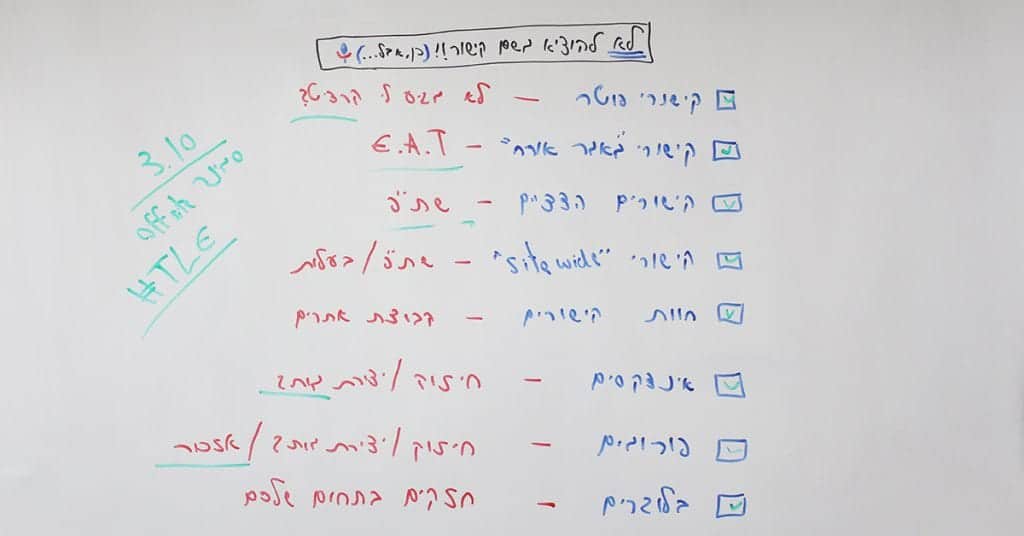 לא להוציא בשם קישור!! (כן, אבל...)
קישורי פוטר - לא מגיע לי קרדיט?
קישורי "מאמר אורח" - E.A.T
קישורים הדדיים - שת"פ
קישורי "Sitewide" - שת"פ/בעלות
חוות קישורים - קבוצת אתרים
אינדקסים - חיזוק/יצירת מותג
פורומים - חיזוק/יצירת מותג/אזכור
בלוגרים - חזקים בתחום שלכם
3.10
offsite
#TLE